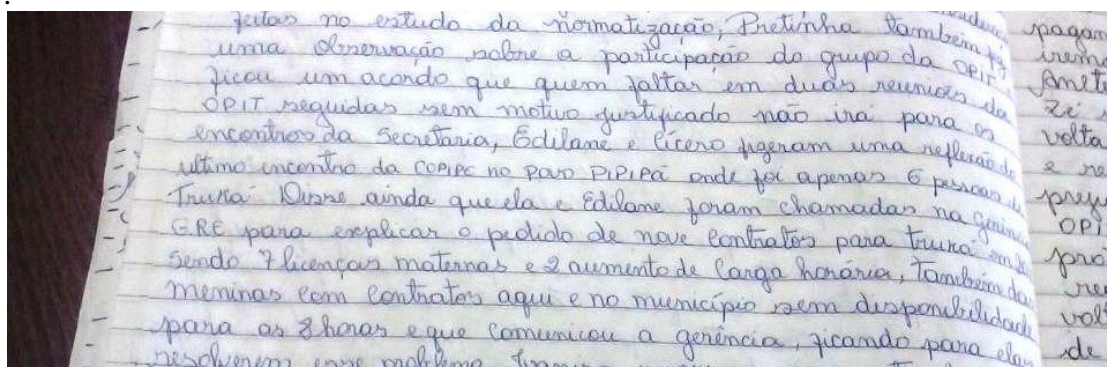 feitas no estudo da normatização, Pretinha também fez
uma observação sobre a participação do grupo da OPIT,
ficou um acordo que quem faltar em duas reuniões da
OPIT seguidas sem motivo justificado não irá para os
encontros da Secretaria, Edilane e Cícero fizeram uma reflexão do
ultimo encontro da COPIPE no povo PIPIPÃ onde foi apenas 6 pessoas do
Truká Disse ainda que ela e Edilane foram chamadas na gerência
GRE para explicar o pedido de nove contratos para truká em
Sendo 7 licenças maternas e 2 aumento de carga horária, Também das
meninas com contratos aqui e no município sem disponibilidade
para as 8 horas e que comunicou a gerência, ficando para elas
resolverem esse problema
pagam
irem
Zé
volta
e
OPI
de